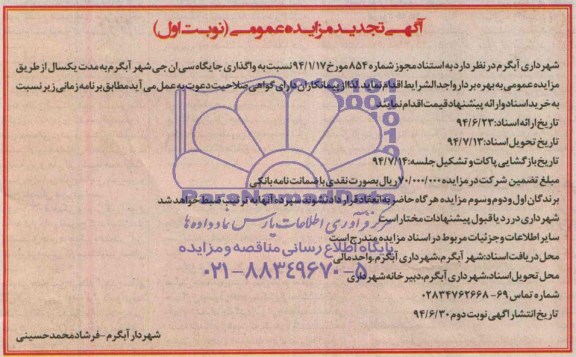 آگهی تجدید مزایده عمومی (نوبت اول)
شهرداری آبگرم در نظر دارد به استناد مجوز شماره ۸۵۴ مورخ ۹۴/۱/۱۷ نسبت به واگذاری جایگاه سی ان جی شهر آبگرم به مدت یکسال از طریق
مزایده عمومی به بهره بردار واجد الشرایط اقدام نماید. لذا از پیمانکاران دارای گواهی صلاحیت دعوت به عمل می آید مطابق برنامه زمانی زیر نسبت
به خرید اسناد و ارائه پیشنهاد قیمت اقدام نمایند.
تاریخ ارائه اسناد: ۹۴/۶/۲۳
تاریخ تحویل اسناد: ۹۴/۷/۱۳
تاریخ بازگشایی پاکات و تشکیل جلسه: ۹۴/۷/۱۴
مبلغ تضمین شرکت در مزایده ۷۰/۰۰۰/۰۰۰ ریال بصورت نقدی یا ضمانت نامه بانکی
برندگان اول و دوم و سوم مزایده هر گاه حاضر به انعقاد قرارداد نشوند سپرده آنها به ترتیب ضبط خواهد شد
شهرداری در رد یا قبول پیشنهادات مختار است
سایر اطلاعات و جزئیات مربوط در اسناد مزایده مندرج است
محل دریافت اسناد: شهر آبگرم، شهرداری آبگرم، واحد مالی
محل تحویل اسناد، شهرداری آبگرم، دبیرخانه شهرداری
شماره تماس ۶۹-۰۲۸۳۴۷۶۲۶۶۸
تاریخ انتشار آگهی نوبت دوم ۹۴/۶/۳۰
شهردار آبگرم - فرشاد محمدحسینی
ParsNamadData
مرکز فرآوری اطلاعات پارس نماد داده ها
پایگاه اطلاع رسانی مناقصه و مزایده
۰۲۱-۸۸۳۴۹۶۷۰-۵